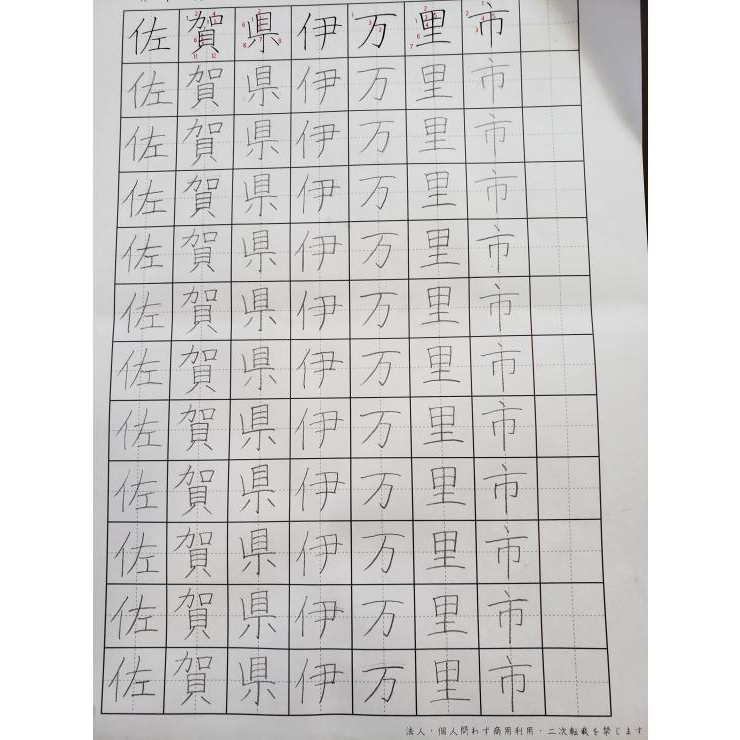 佐賀県伊万里市
佐賀県伊万里市
佐賀県伊万里市
佐賀県伊万里市
佐賀県伊万里市
佐賀県伊万里市
佐賀県伊万里市
佐賀県伊万里市
佐賀県伊万里市
佐賀県伊万里市
佐賀県伊万里市
佐賀県伊万里市
法人・個人問わず商用利用・二次転載を禁じます